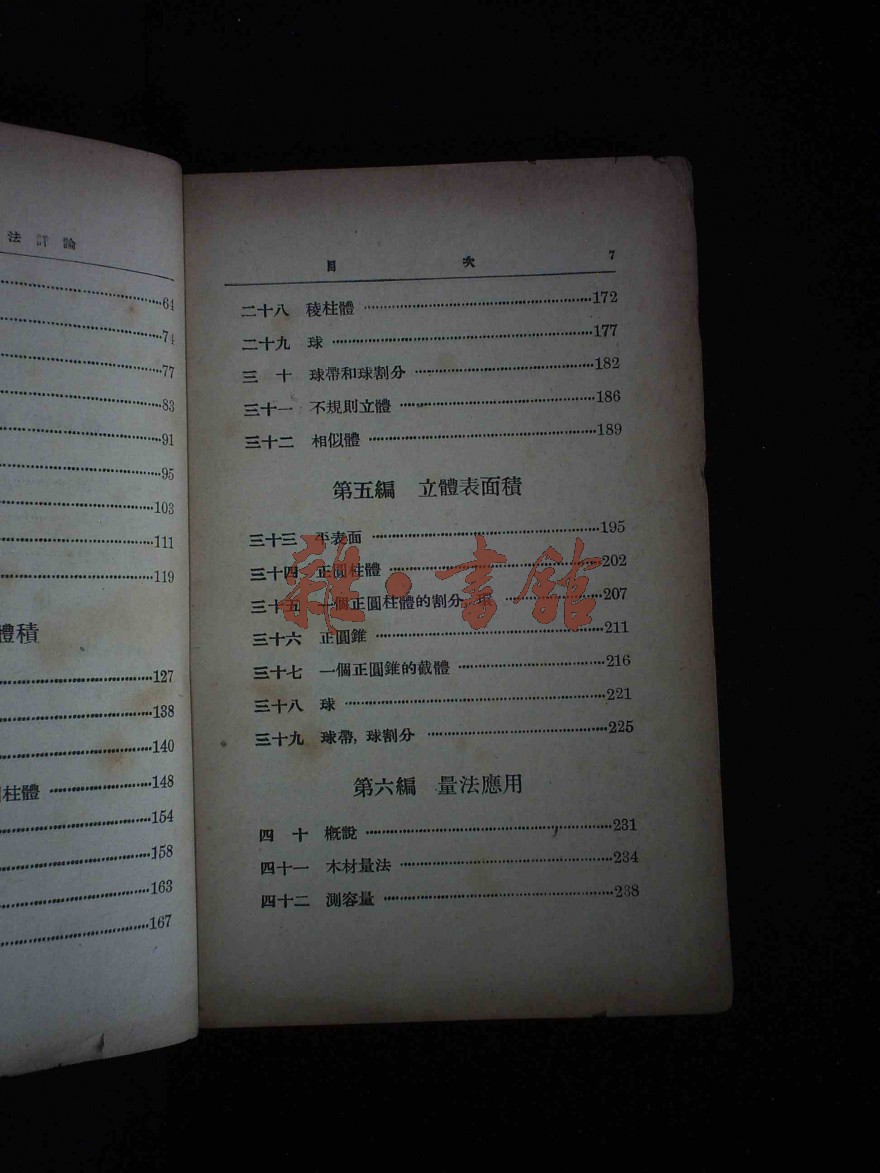 法詳論
64
74
77
83
91
95
103
111
119
體積
127
138
140
柱體 148
154
158
163
167
目 次 7
二十八 稜柱體 172
二十九 球 177
三 十 球帶和球割分 182
三十一 不規則立體 186
三十二 相似體 189
第五編 立體表面積
三十三 平表面 195
三十四 正圓柱體 202
三十五 一個正圓柱體的割分,環 207
三十六 正圓錐 211
三十七 一個正圓錐的截體 216
三十八 球 221
三十九 球帶,球割分 225
第六編 量法應用
四 十 概說 231
四十一 木材量法 234
四十二 測容量 238
雜·書館